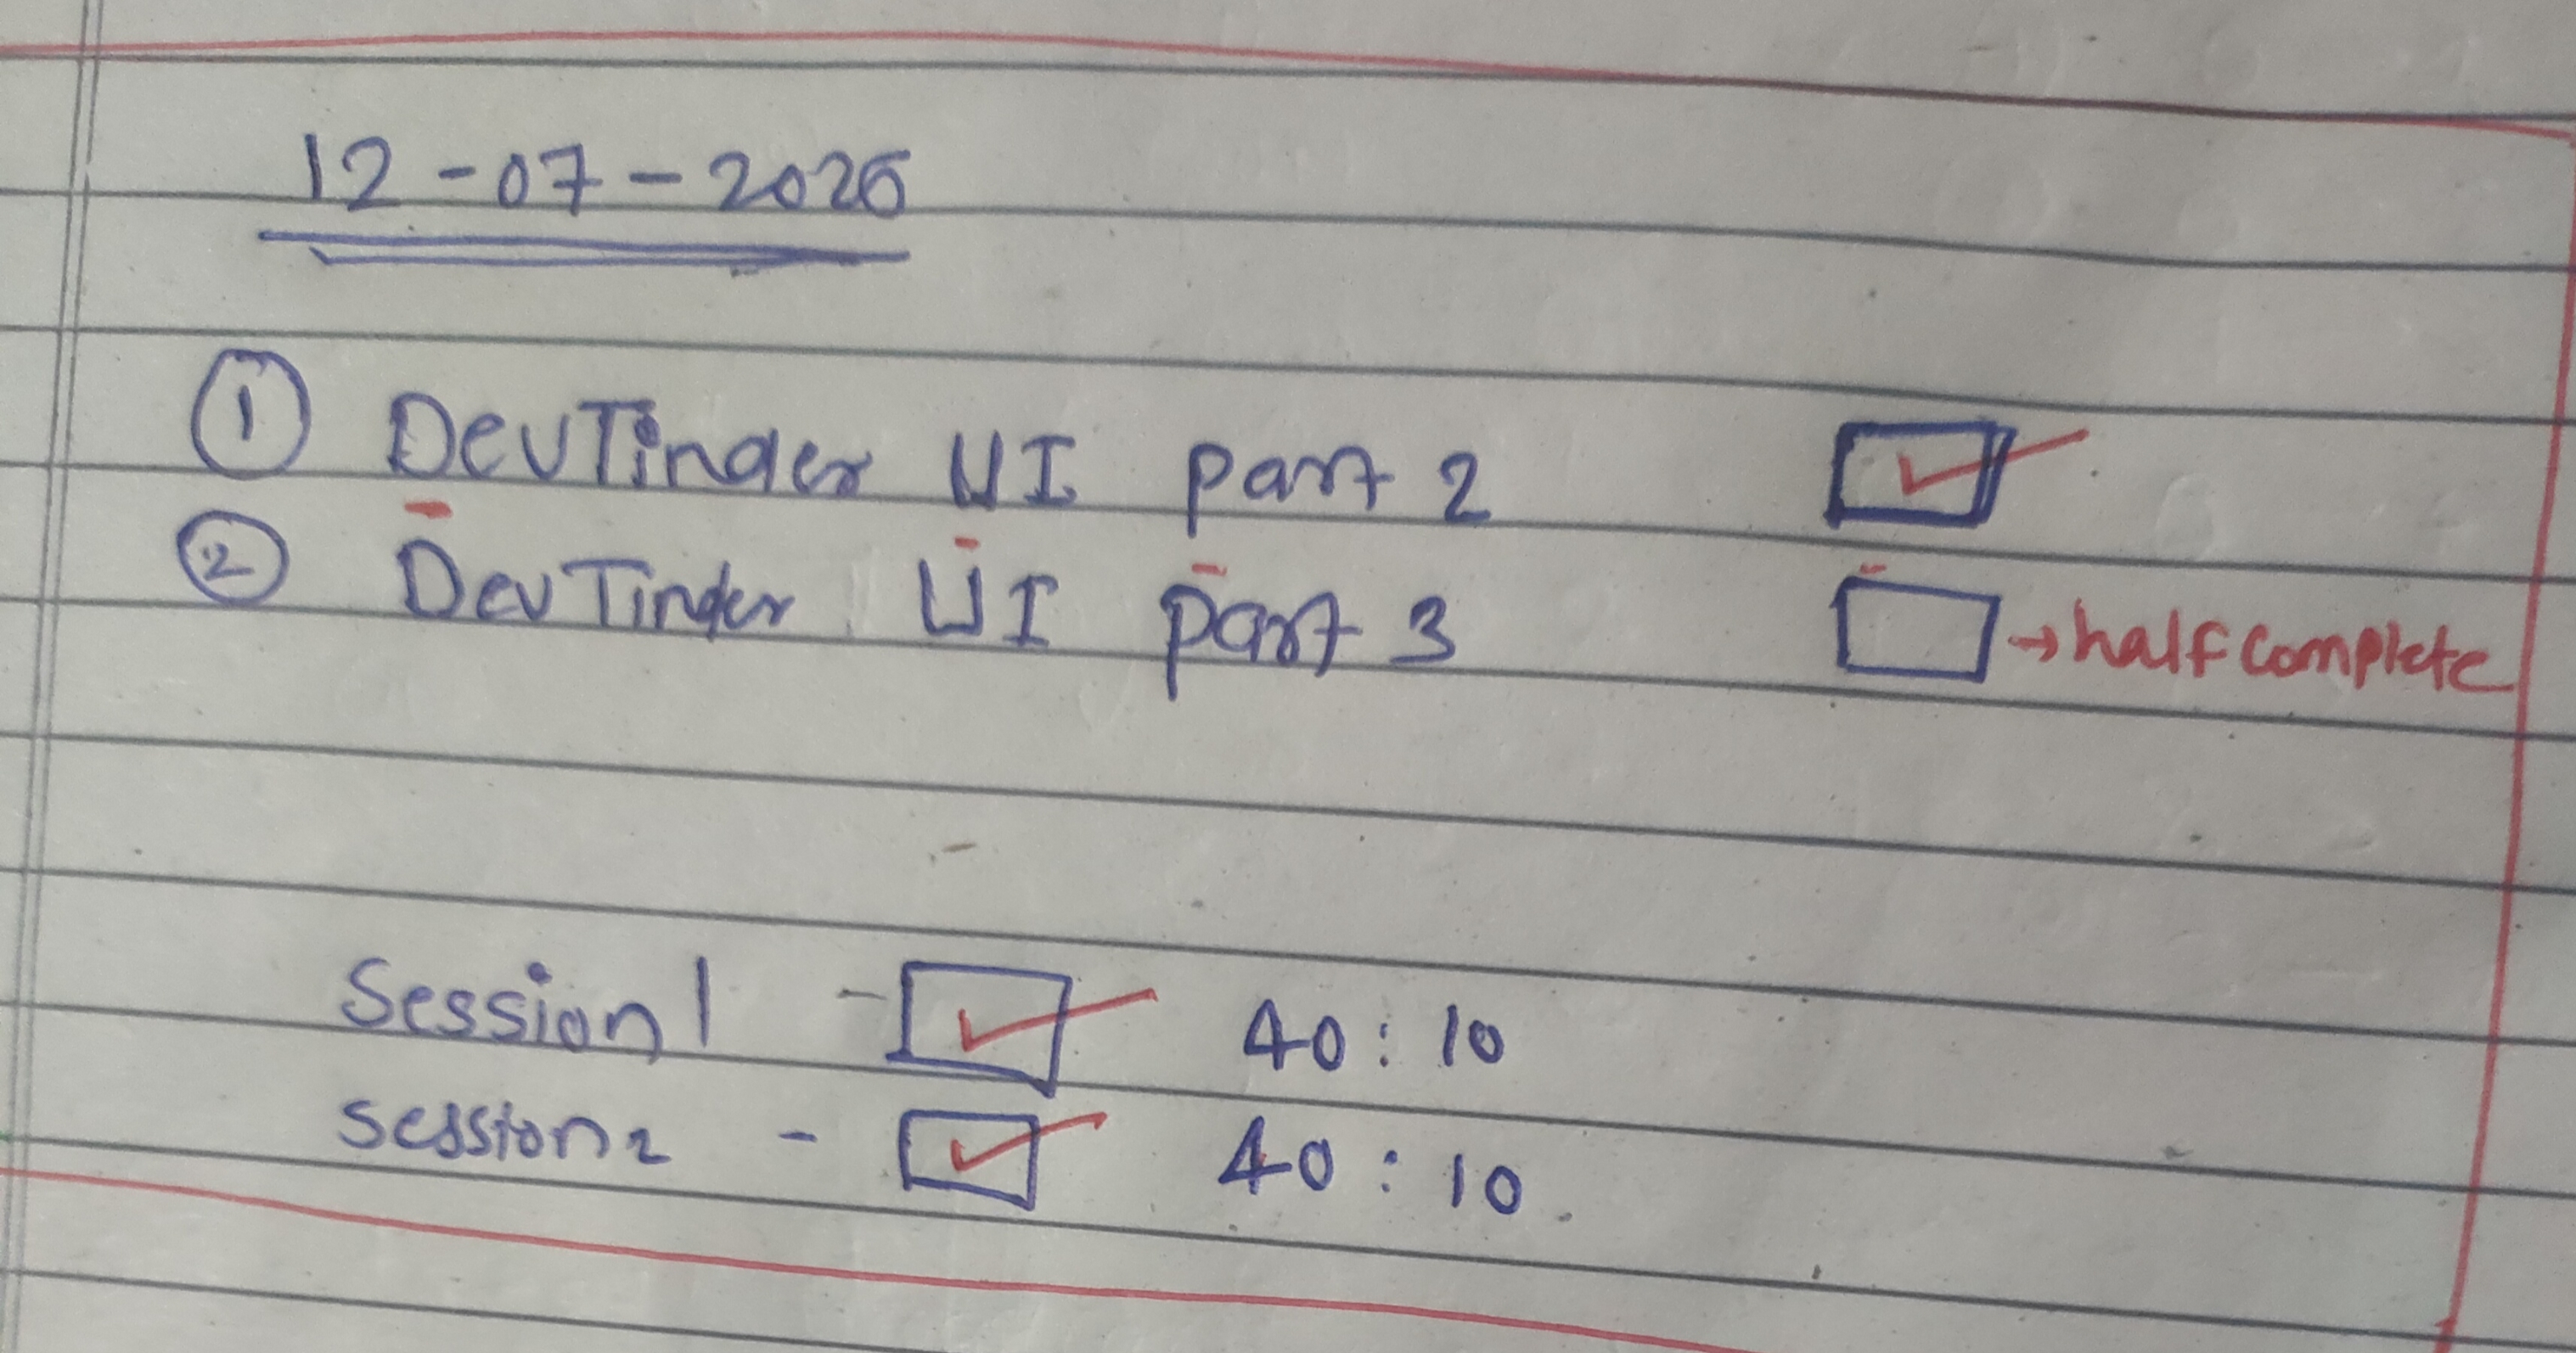 12-07-2026
① DevTinder UI part 2 ☑
② DevTinder UI part 3 ☐ → half complete
Session 1 - ☑ 40 : 10
session 2 - ☑ 40 : 10